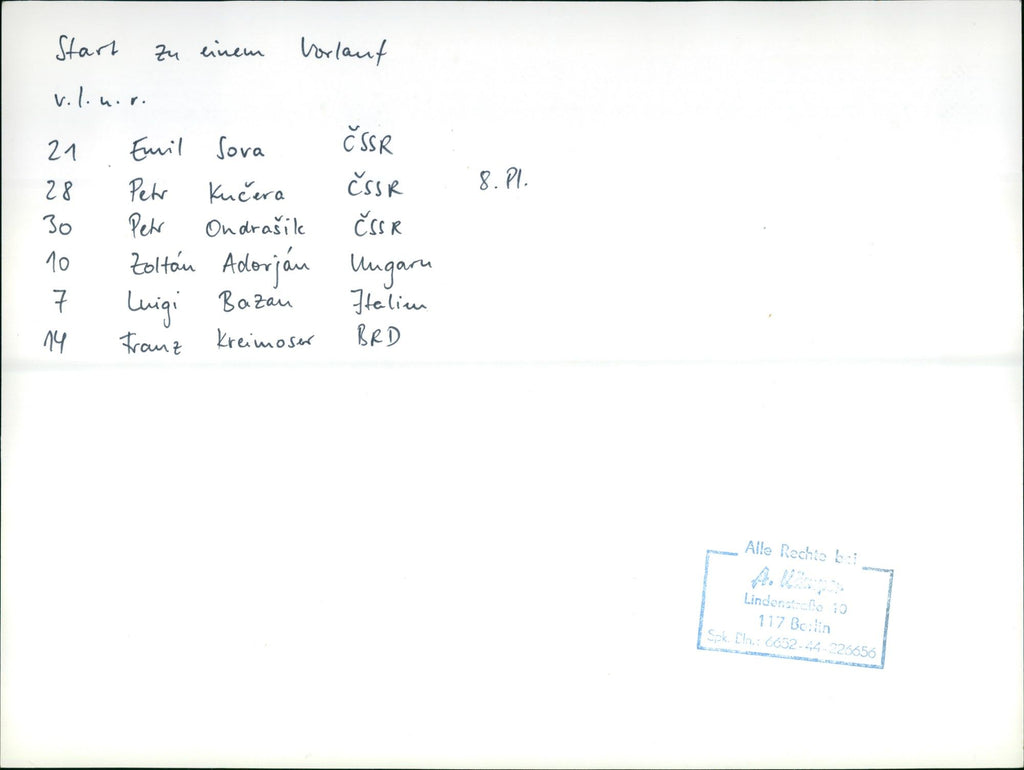 Start zu einem Vorlauf
v.l.n.r.
21 Emil Sova ČSSR
28 Petr Kučera ČSSR 8. Pl.
30 Petr Ondrašik ČSSR
10 Zoltán Adorján Ungarn
7 Luigi Bazan Italien
14 Franz Kreimoser BRD
Alle Rechte bei
A.
Lindenstraße 10
117 Berlin
Spk. Bln.: 6652-44-226656